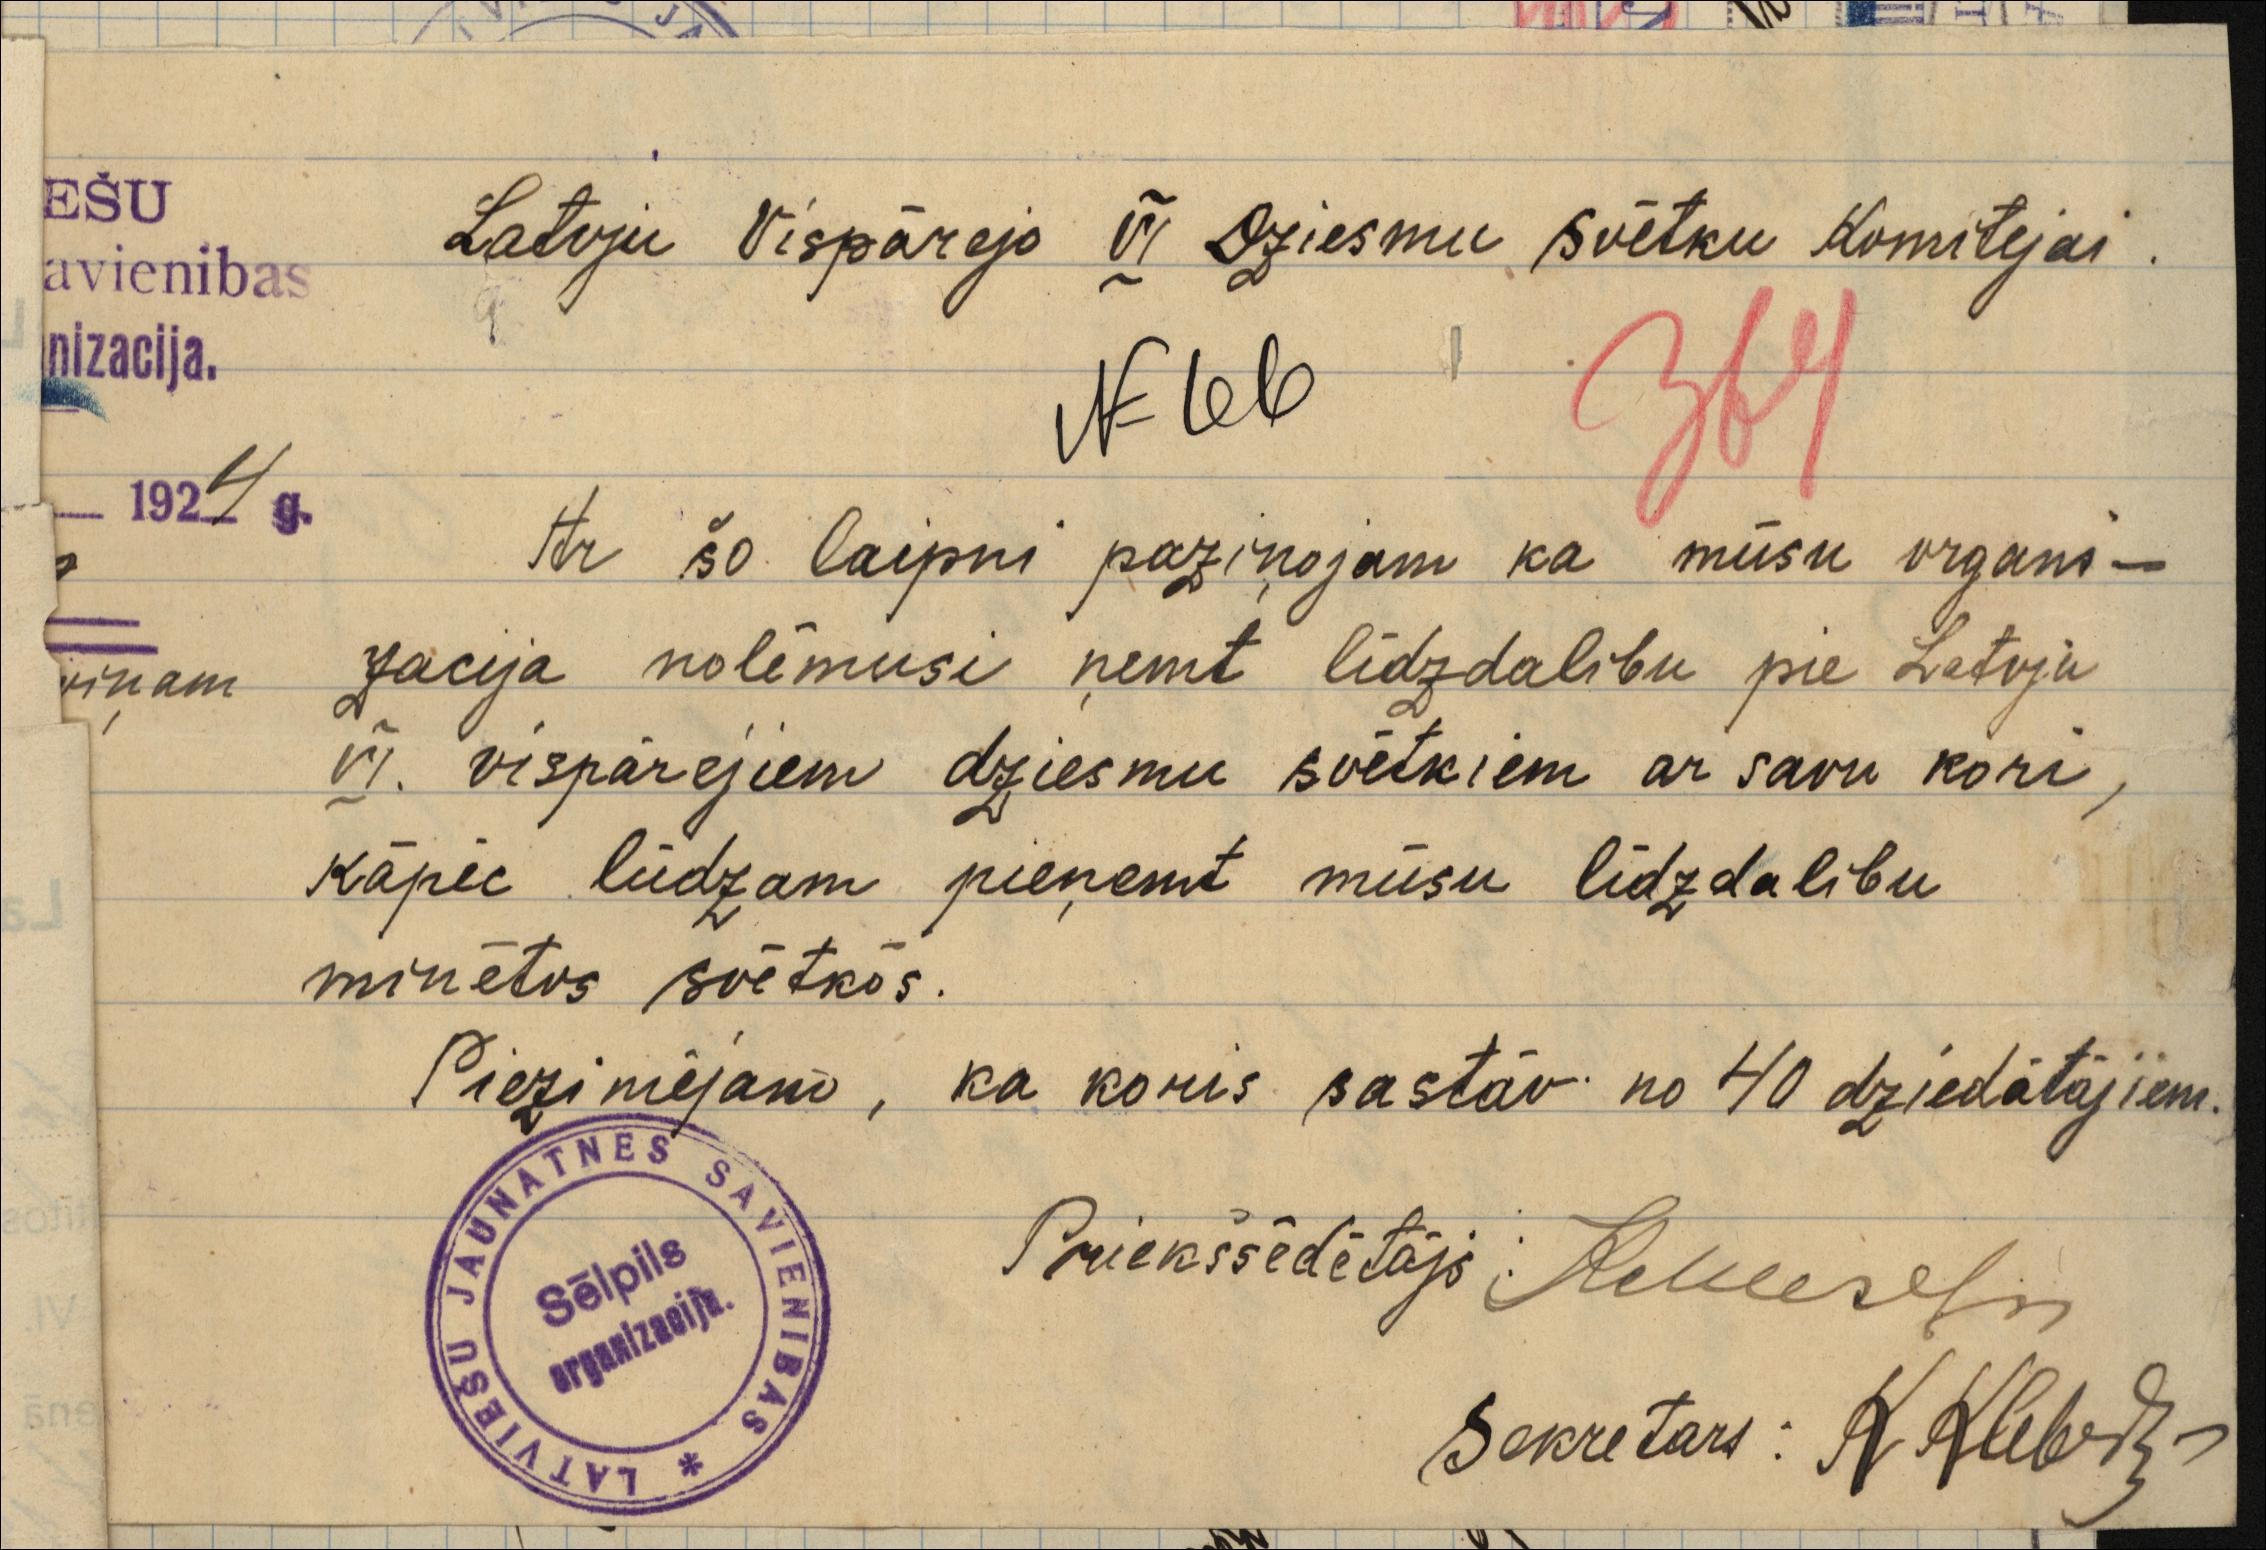 EŠU
avienibas
nizacija.
1924 g.
viņam
Latvju Vispārejo VI Dziesmu svētku Komitejai.
№ 66
364
Ar šo laipni paziņojam ka mūsu organi-
zacija nolēmusi ņemt līdzdalibu pie Latvju
VI. vispārējiem dziesmu svētkiem ar savu kori,
kāpēc lūdzam pieņemt mūsu līdzdalibu
minētos svētkōs.
Piezimējam, ka koris sastāv no 40 dziedātājiem.
LATVIEŠU JAUNATNES SAVIENIBAS *
Sēlpils
organizacija.
Priekšsēdētājs:
Sekretars: K